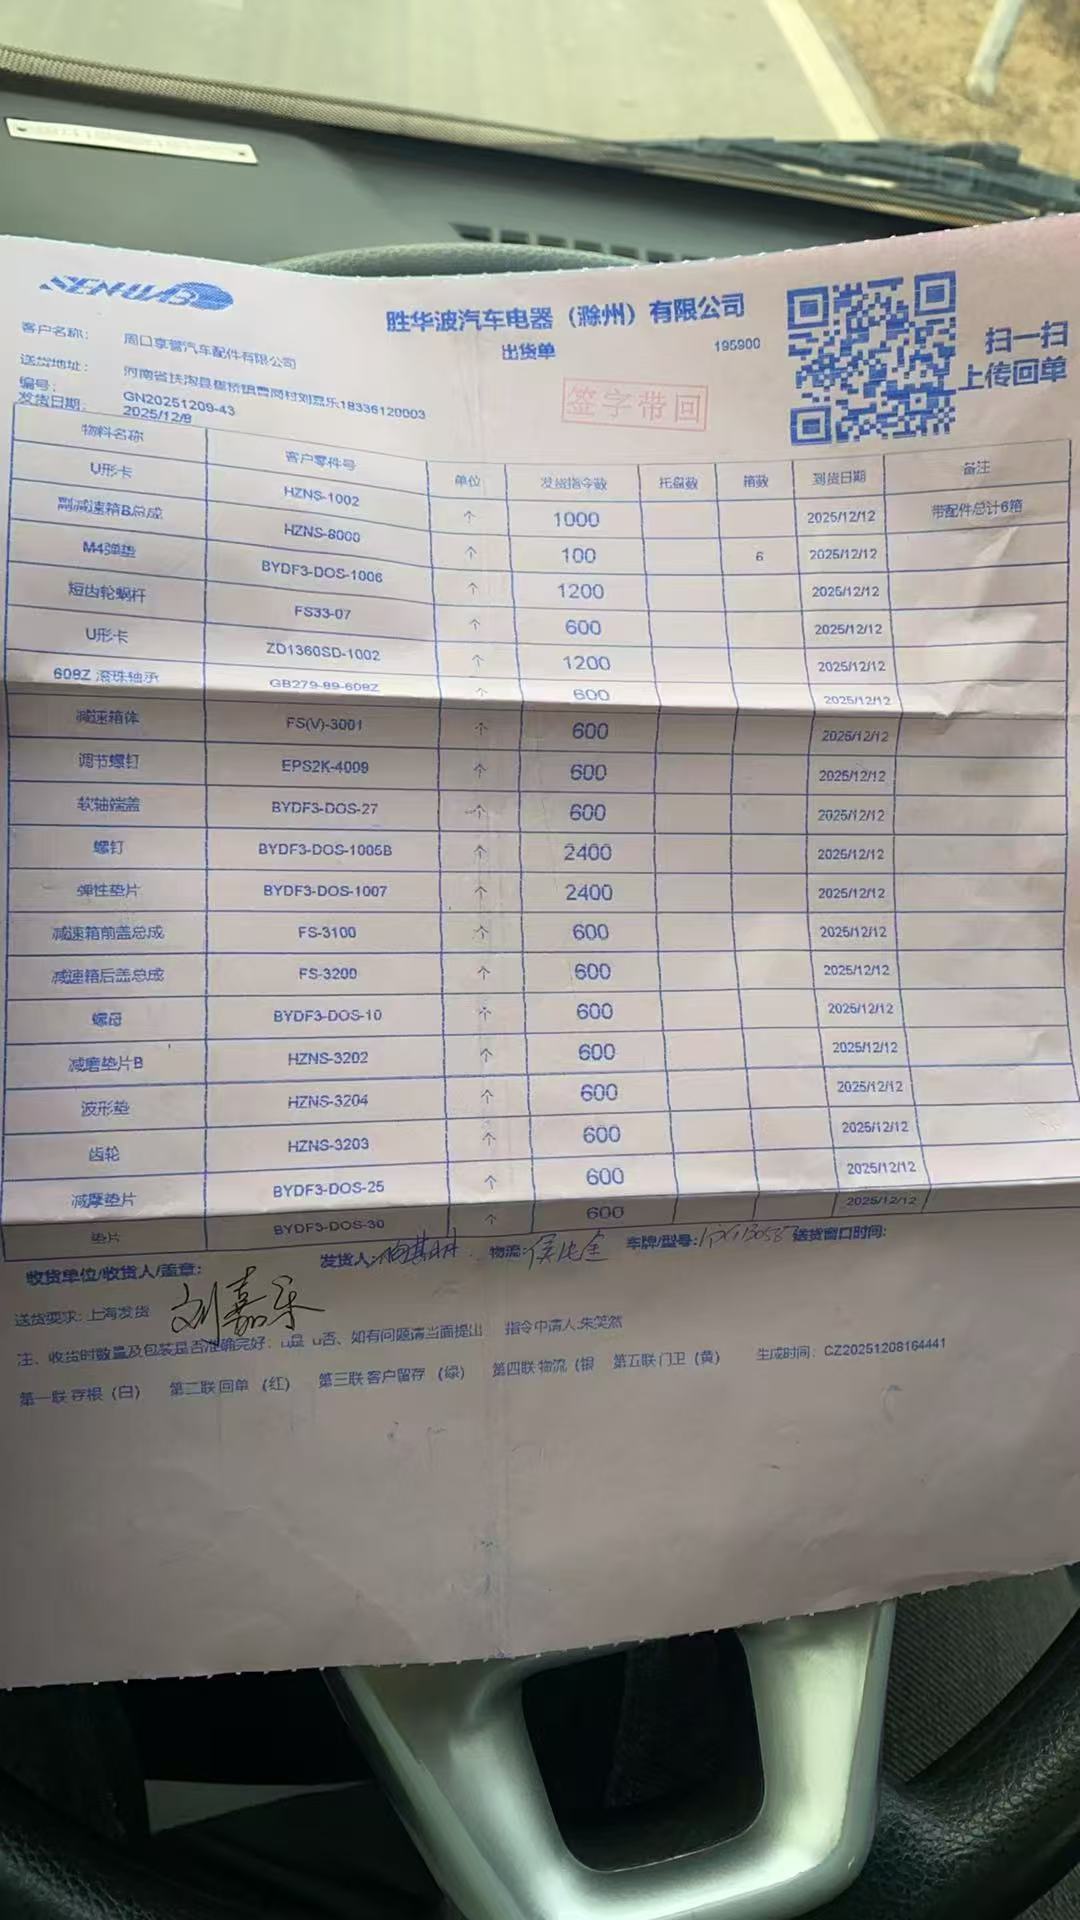 SENUAB
胜华波汽车电器（滁州）有限公司
出货单
195900
扫一扫
上传回单
签字带回
客户名称： 周口享誉汽车配件有限公司
送货地址： 河南省扶沟县崔桥镇曹岗村刘嘉乐18336120003
编号： GN20251209-43
发货日期： 2025/12/8
物料名称 客户零件号 单位 发货指令数 托盘数 箱数 到货日期 备注
U形卡 HZNS-1002 个 1000 2025/12/12 带配件总计6箱
副减速箱B总成 HZNS-8000 个 100 6 2025/12/12
M4弹垫 BYDF3-DOS-1006 个 1200 2025/12/12
短齿轮蜗杆 FS33-07 个 600 2025/12/12
U形卡 ZD1360SD-1002 个 1200 2025/12/12
608Z 滚珠轴承 GB279-89-608Z 个 600 2025/12/12
减速箱体 FS(V)-3001 个 600 2025/12/12
调节螺钉 EPS2K-4009 个 600 2025/12/12
软轴端盖 BYDF3-DOS-27 个 600 2025/12/12
螺钉 BYDF3-DOS-1005B 个 2400 2025/12/12
弹性垫片 BYDF3-DOS-1007 个 2400 2025/12/12
减速箱前盖总成 FS-3100 个 600 2025/12/12
减速箱后盖总成 FS-3200 个 600 2025/12/12
螺母 BYDF3-DOS-10 个 600 2025/12/12
减磨垫片B HZNS-3202 个 600 2025/12/12
波形垫 HZNS-3204 个 600 2025/12/12
齿轮 HZNS-3203 个 600 2025/12/12
减摩垫片 BYDF3-DOS-25 个 600 2025/12/12
垫片 BYDF3-DOS-30 个 600 2025/12/12
收货单位/收货人/盖章： 发货人： 物流： 车牌/型号： 送货窗口时间：
刘嘉乐
送货要求：上海发货
注、收货时数量及包装是否准确完好：u是 u否、如有问题请当面提出 指令申请人:朱笑然
第一联 存根（白） 第二联 回单 （红） 第三联 客户留存 （绿） 第四联 物流（银 第五联 门卫（黄） 生成时间：CZ20251208164441